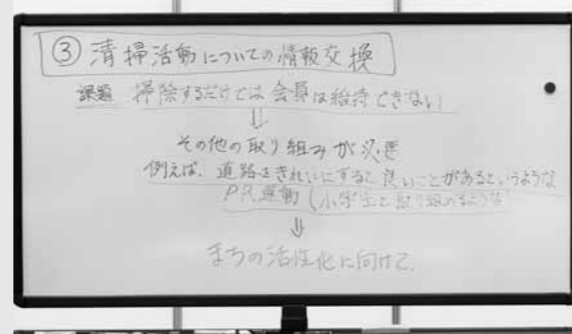 ③ 清掃活動についての情報交換
課題 掃除するだけでは会員は維持できない
⇓
その他の取り組みが必要
例えば、道路をきれいにすると良いことがあるというような
PR運動(小学生も取り組めるような
⇓
まちの活性化に向けて